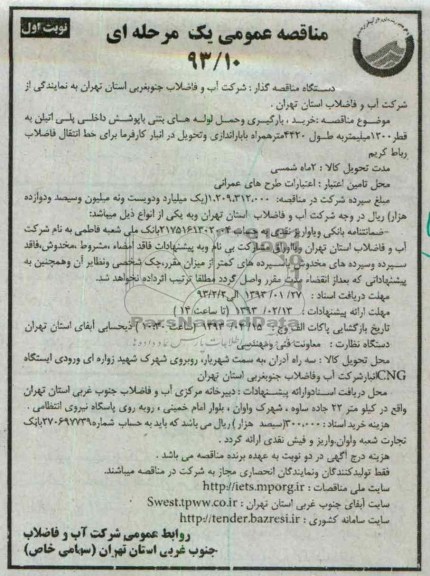 نوبت اول
مناقصه عمومی یک مرحله ای
۹۳/۱۰
دستگاه مناقصه گذار : شرکت آب و فاضلاب جنوبغربی استان تهران به نمایندگی از
شرکت آب و فاضلاب استان تهران .
موضوع مناقصه :خرید ، بارگیری وحمل لوله های بتنی باپوشش داخلی پلی اتیلن به
قطر ۱۲۰۰میلیمتربه طول ۴۲۲۰مترهمراه باباراندازی وتحویل در انبار کارفرما برای خط انتقال فاضلاب
رباط کریم
مدت تحویل کالا : ۲ماه شمسی
محل تامین اعتبار : اعتبارات طرح های عمرانی
مبلغ سپرده شرکت در مناقصه: ۱،۲۰۹،۳۱۲،۰۰۰(یک میلیارد ودویست ونه میلیون وسیصد ودوازده
هزار) ریال در وجه شرکت آب و فاضلاب استان تهران وبه یکی از انواع ذیل میباشد:
-ضمانتنامه بانکی ویاواریز نقدی به حساب بانک ملی شعبه فاطمی به نام شرکت
آب و فاضلاب استان تهران ویااوراق مشارکت بی نام وبه پیشنهادات فاقد امضاء ،مشروط ،مخدوش،فاقد
سپرده وسپرده های مخدوش ، سپرده های کمتر از میزان مقرر،چک شخصی ونظایر آن وهمچنین به
پیشنهاداتی که بعداز انقضاء مدت مقرر واصل گردد مطلقا ترتیب اثرداده نخواهد شد.
مهلت دریافت اسناد : ۱۳۹۳/۰۱/۲۷ الی ۹۳/۲/۲
مهلت ارائه پیشنهادات : ۱۳۹۳/۰۲/۱۳ (تا ساعت ۱۳ )
تاریخ بازگشایی پاکات الف و ج : ساعت ۱۰:۳۰ )ذیحسابی آبفای استان تهران
دستگاه نظارت : معاونت فنی ومهندسی
محل تحویل کالا : سه راه آدران ،به سمت شهریار، روبروی شهرک شهید زواره ای ورودی ایستگاه
CNGانبارشرکت آب وفاضلاب جنوبغربی استان تهران
محل دریافت اسنادوارائه پیشنهادات : دبیرخانه مرکزی آب و فاضلاب جنوب غربی استان تهران
واقع در کیلو متر ۲۲ جاده ساوه ، شهرک واوان ، بلوار امام خمینی ، روبه روی پاسگاه نیروی انتظامی .
هزینه خرید اسناد : ۳۰۰،۰۰۰(سیصد هزار ) ریال می باشد که باید به حساب شماره ۲۷۰۶۹۷۷۳۹بانک
تجارت شعبه واوان،واریز و فیش نقدی ارائه گردد .
هزینه درج آگهی در دو نوبت به عهده برنده مناقصه می باشد .
فقط تولیدکنندگان ونمایندگان انحصاری مجاز به شرکت در مناقصه میباشند.
سایت ملی مناقصات : http://iets.mporg.ir
سایت آبفای جنوب غربی استان تهران : Swest.tpww.co.ir
سایت سامانه کشوری : http://tender.bazresi.ir
روابط عمومی شرکت آب و فاضلاب
جنوب غربی استان تهران (سهامی خاص)